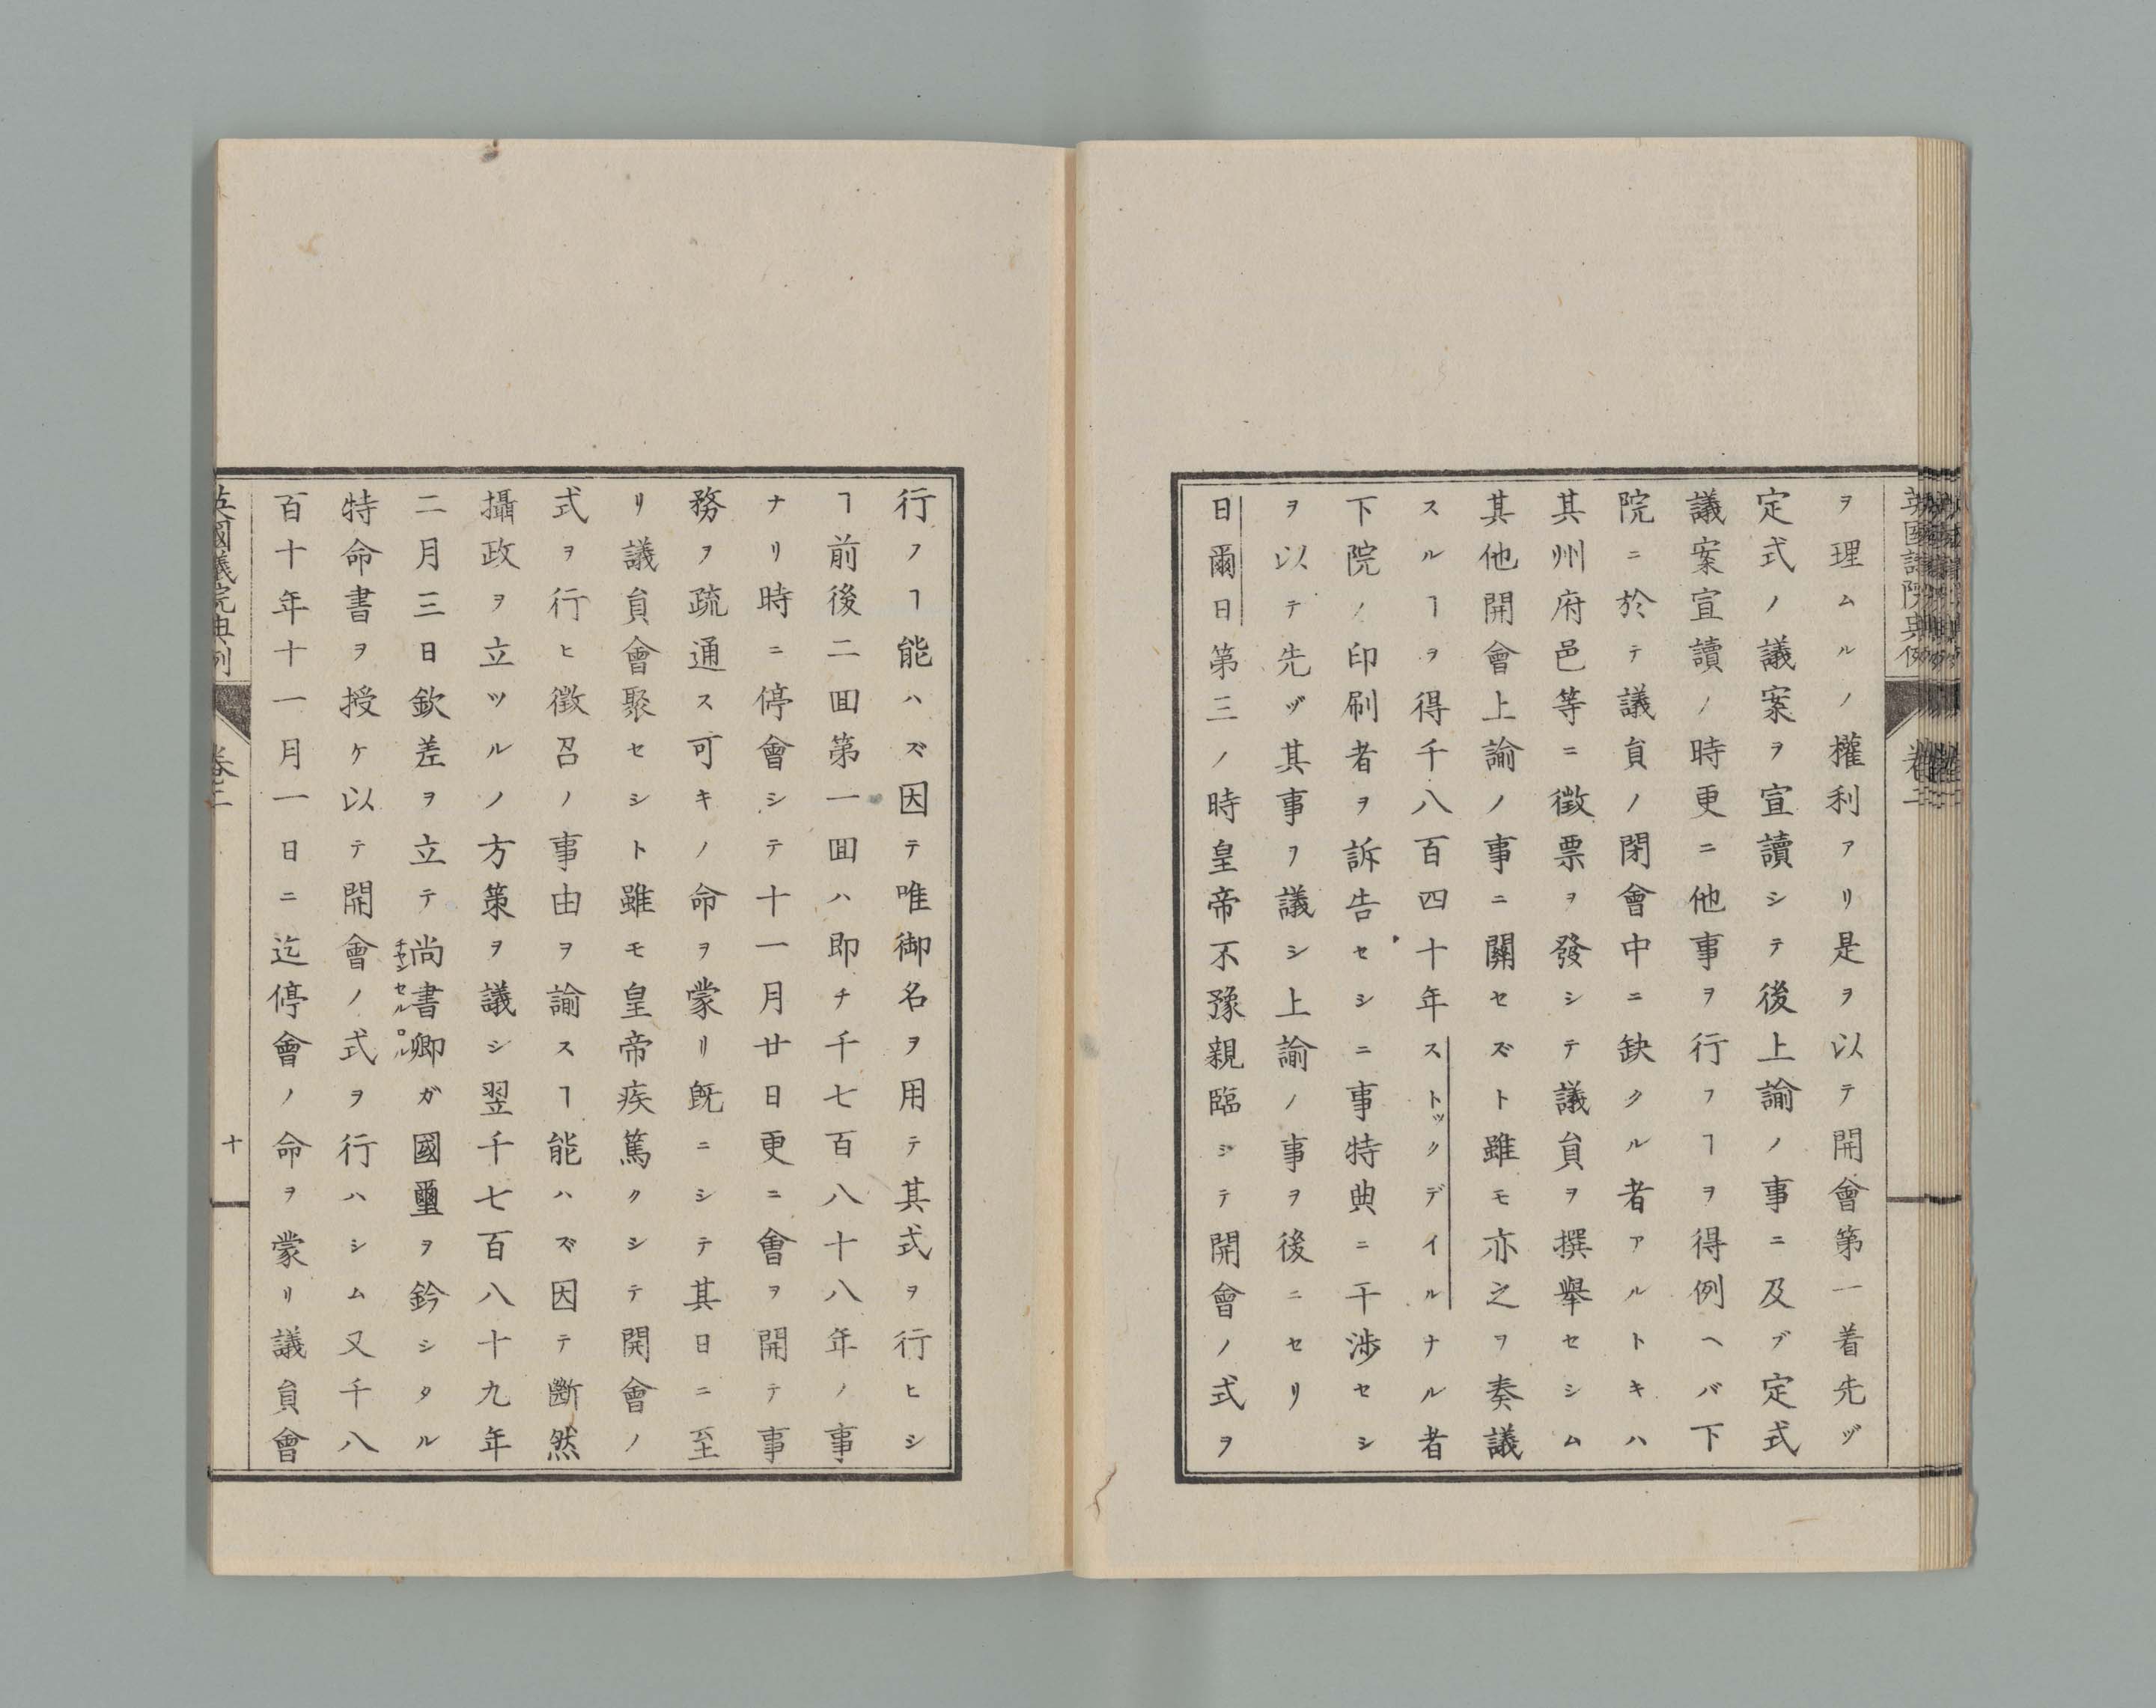 英國議院典例 卷二
ヲ理ムルノ權利アリ是ヲ以テ開會第一着先ヅ
定式ノ議案ヲ宣讀シテ後上諭ノ事ニ及ブ定式
議案宣讀ノ時更ニ他事ヲ行フヿヲ得例ヘバ下
院ニ於テ議員ノ閉會中ニ缺クル者アルトキハ
其州府邑等ニ徴票ヲ發シテ議員ヲ撰舉セシム
其他開會上諭ノ事ニ關セズト雖モ亦之ヲ奏議
スルヿヲ得千八百四十年ストックデイルナル者
下院ノ印刷者ヲ訴告セシニ事特典ニ干渉セシ
ヲ以テ先ヅ其事ヲ議シ上諭ノ事ヲ後ニセリ
日爾日第三ノ時皇帝不豫親臨シテ開會ノ式ヲ
行フヿ能ハズ因テ唯御名ヲ用テ其式ヲ行ヒシ
ヿ前後二回第一回ハ即チ千七百八十八年ノ事
ナリ時ニ停會シテ十一月廿日更ニ會ヲ開テ事
務ヲ疏通ス可キノ命ヲ蒙リ既ニシテ其日ニ至
リ議員會聚セシト雖モ皇帝疾篤クシテ開會ノ
式ヲ行ヒ徴召ノ事由ヲ諭スヿ能ハズ因テ斷然
攝政ヲ立ツルノ方策ヲ議シ翌千七百八十九年
二月三日欽差ヲ立テ尚書卿ガ國璽ヲ鈐シタル
チヤンセルロル
特命書ヲ授ケ以テ開會ノ式ヲ行ハシム又千八
百十年十一月一日ニ迄停會ノ命ヲ蒙リ議員會
英國議院典例 卷二 十